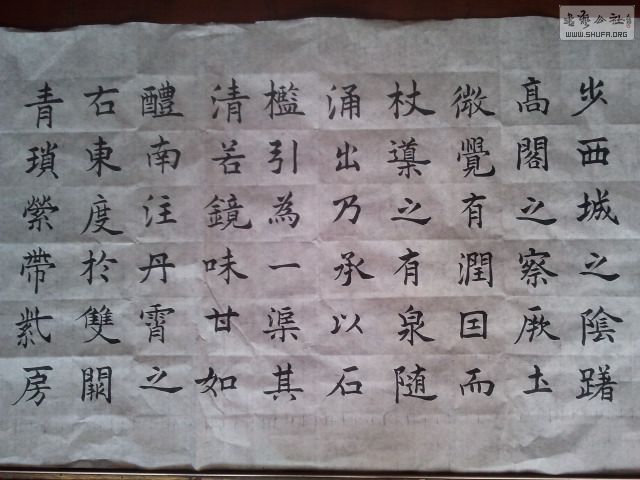 步西城之陰躇
高閣之察厥土
微覺有潤因而
杖導之有泉随
涌出乃承以石
檻引為一渠其
清若鏡味甘如
醴南注丹霄之
右東度於雙闕
青瑣縈帶紫房
書藝公社
WWW.SHUFA.ORG